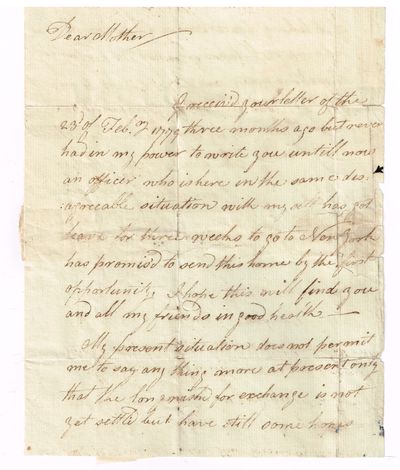 Dear Mother
I receiv'd your letter of the
23d of Feb.ry 1779 three months ago but never
had in my power to write you untill now
an officer who is here in the same dis-
agreeable situation with my self has got
leave for three weeks to go to New York
has promis'd to send this home by the first
opportunity, I hope this will find you
and all my friends in good health —
My present situation does not permit
me to say any thing more at present only
that the for exchange is not
yet settl'd but have still some hopes